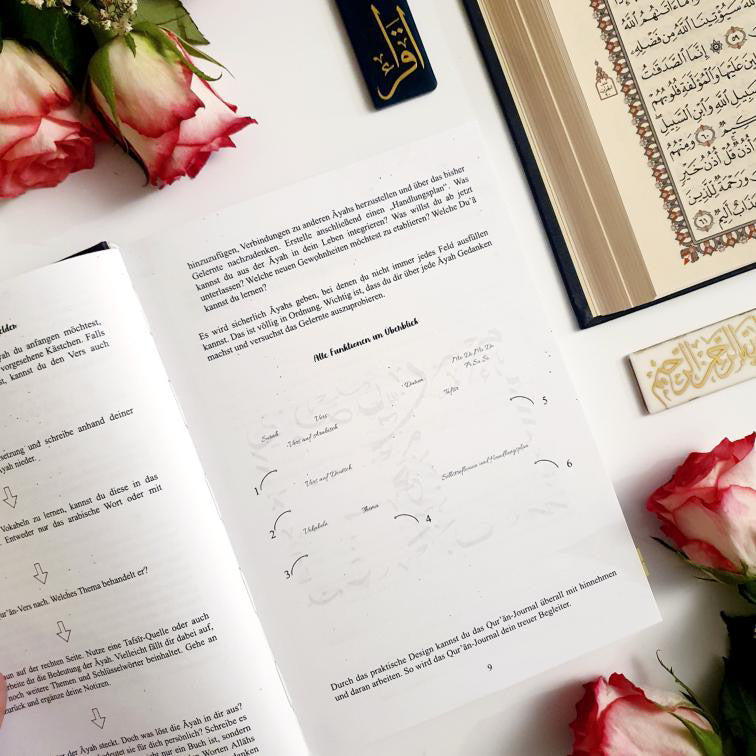 elder
yah du anfangen möchtest,
vorgesehene Kästchen. Falls
st, kannst du den Vers auch
setzung und schreibe anhand deiner
Āyah nieder.
Vokabeln zu lernen, kannst du diese in das
Entweder nur das arabische Wort oder mit
ur'ān-Vers nach. Welches Thema behandelt er?
un auf der rechten Seite. Nutze eine Tafsīr-Quelle oder auch
arbeite dir die Bedeutung der Āyah. Vielleicht fällt dir dabei auf,
noch weitere Themen und Schlüsselwörter beinhaltet. Gehe an
zurück und ergänze deine Notizen.
der Āyah steckt. Doch was löst die Āyah in dir aus?
bedeutet sie für dich persönlich? Schreibe es
cht nur ein Buch ist, sondern
Worten Allāhs
denken
hinzuzufügen, Verbindungen zu anderen Āyahs herzustellen und über das bisher
Gelernte nachzudenken. Erstelle anschließend einen „Handlungsplan“. Was
kannst du aus der Āyah in dein Leben integrieren? Was willst du ab jetzt
unterlassen? Welche neuen Gewohnheiten möchtest zu etablieren? Welche Du'ā
kannst du lernen?
Es wird sicherlich Āyahs geben, bei denen du nicht immer jedes Feld ausfüllen
kannst. Das ist völlig in Ordnung. Wichtig ist, dass du dir über jede Āyah Gedanken
machst und versuchst das Gelernte auszuprobieren.
Alle Funktionen im Überblick
Mo Di Mi Do
Fr Sa So
Datum
Tafsir
5
Surah
Vers
Vers auf Arabisch
1
Vers auf Deutsch
Selbstreflexion und Handlungsplan
6
2
Vokabeln
Thema
4
3
Durch das praktische Design kannst du das Qur'ān-Journal überall mit hinnehmen
und daran arbeiten. So wird das Qur'ān-Journal dein treuer Begleiter.
9
اقرأ
سَيُؤْتِينَا اللَّهُ مِن فَضْلِهِ
إِنَّمَا الصَّدَقَاتُ
عَلَيْهَا وَالْمُؤَلَّفَةِ قُلُوبُهُمْ
سَبِيلِ اللَّهِ وَابْنِ السَّبِيلِ
وَمِنْهُمُ
أُذُنٌ قُلْ أُذُنُ خَيْرٍ
وَرَحْمَةٌ لِّلَّذِينَ
عَذَابٌ أَلِيمٌ
الله الرحمن الرحيم